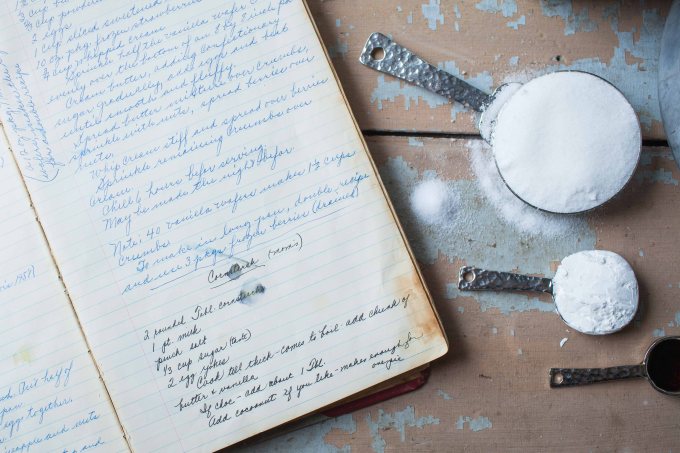 1 cup sliced sweetened
10 oz pkg. frozen strawberries
3/4 cup
2 eggs
1 cup whipped cream
Sprinkle half the vanilla wafer
evenly over the bottom of an 8 by 8 inch pan
Cream butter, adding confectionary
sugar gradually, add eggs and beat
until smooth and fluffy.
Spread butter mixture over crumbs,
sprinkle with nuts, spread berries over
nuts.
Whip cream stiff and spread over berries
cream.
Sprinkle remaining crumbs over
Chill 6 hours before serving.
May be made the night before
Note: 40 vanilla wafers makes 1 1/3 cups
crumbs
To make in long pan, double recipe
and use 3 pkgs frozen berries (drained)
Cornstarch (moms)
2 rounded Tabl. cornstarch
1 pt. milk
pinch salt
1/3 cup sugar (taste)
2 egg yokes
Cook till thick - comes to boil - add chunk of
butter & vanilla
If choc - add about 1 Tbl.
Add cocoanut if you like - makes enough for
one pie
1958)
half of
pan
egg together,
pineapple and nuts
and